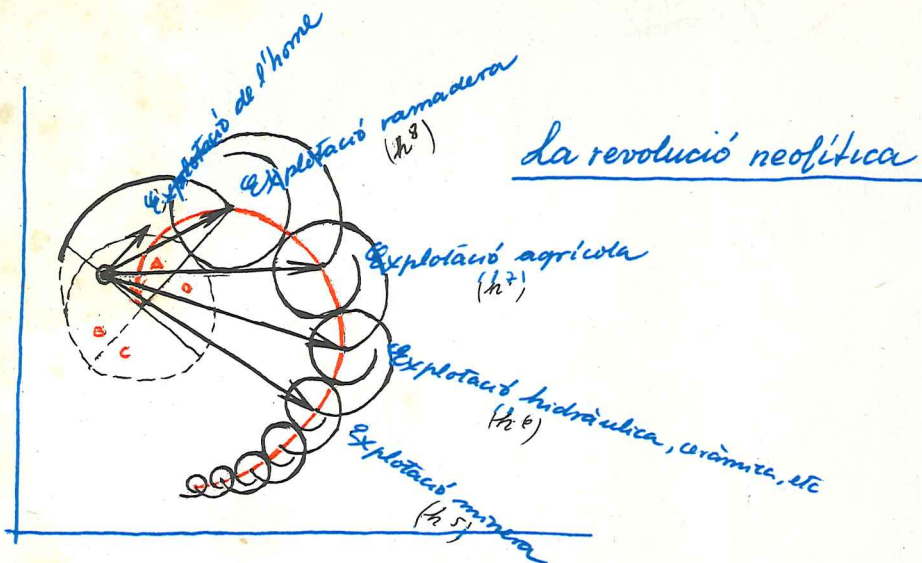 La revolució neolítica
Explotació de l'home
Explotació ramadera
(h⁸)
Explotació agrícola
(h⁷)
Explotació hidràulica, ceràmica, etc
(h⁶)
Explotació minera
(h⁵)
A
D
B
C